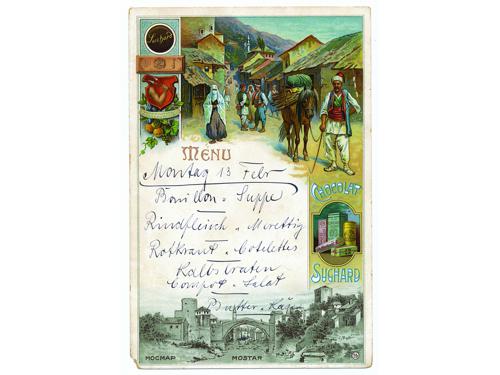 Suchard
MENU
Montag 13 Febr
Bouillon Suppe
Rindfleisch u Merettig
Rotkraut u Cotelettes
Kalbsbraten
Compot u Salat
Butter u Käse
CHOCOLAT
SUCHARD
МОСТАР MOSTAR